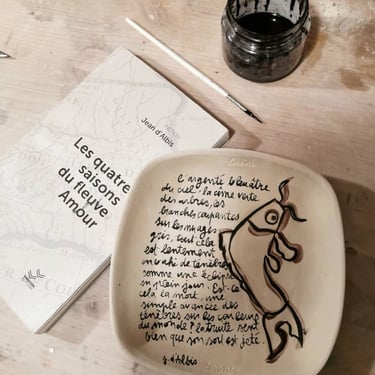 Jean d'Albis
Les quatre
saisons
du fleuve
Amour
l'argenté bleuâtre
du ciel. la cime verte
des arbres, les
branches coupantes
sur les nuages
gris, tout cela
est lentement
envahi de ténèbres
comme une éclipse
en plein jour. Est-ce
cela la mort, une
simple avancée des
ténèbres sur les couleurs
du monde? la truite sent
bien que son sort est jeté.
j. d'Albis